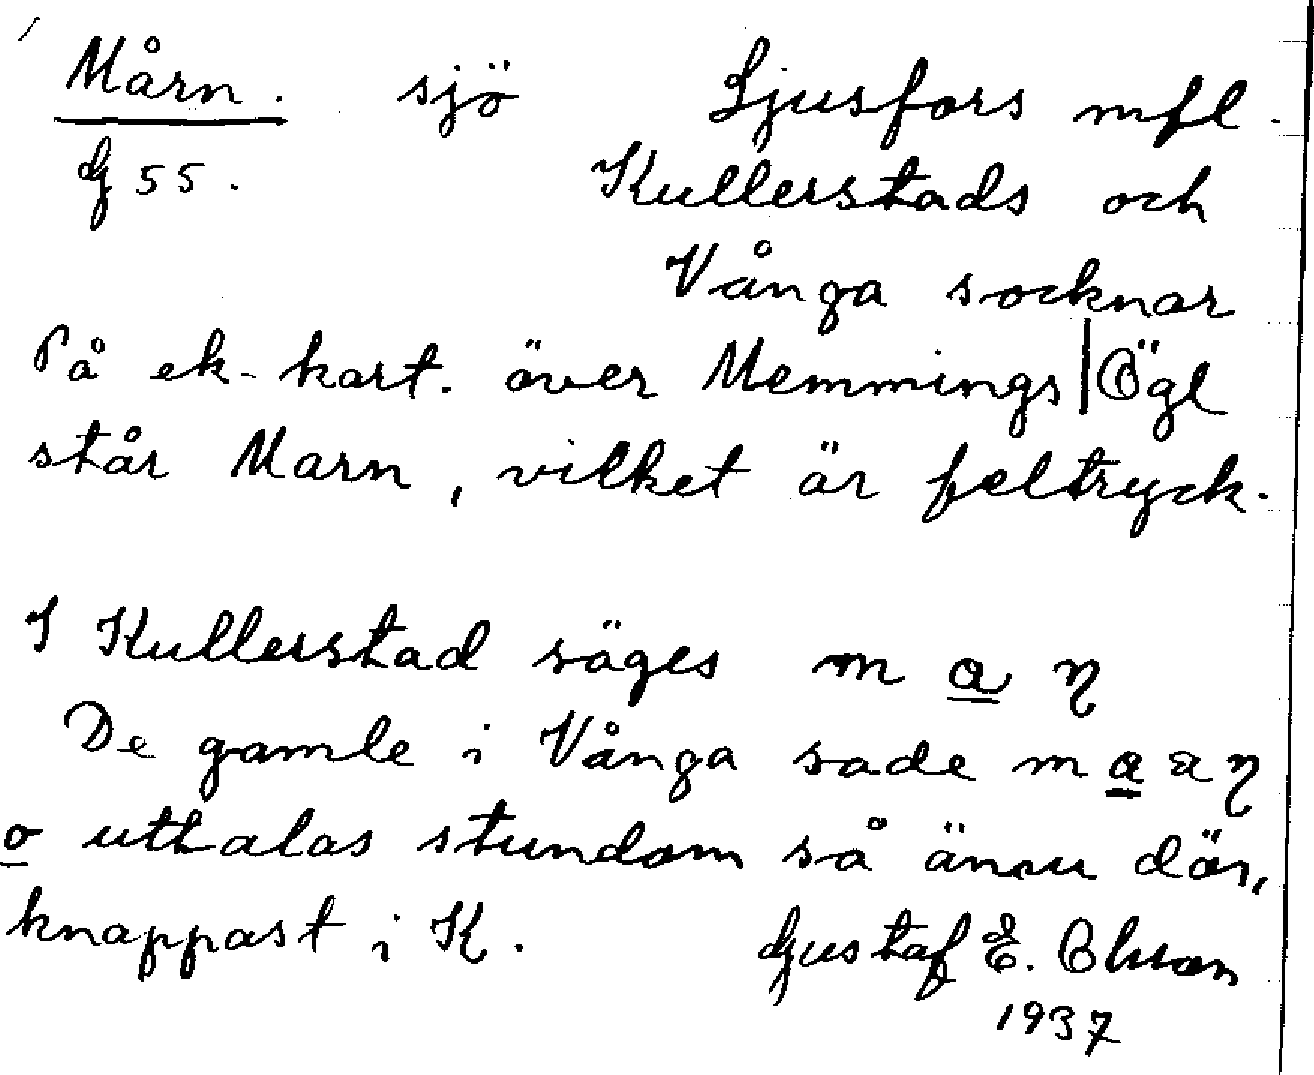 Mårn. sjö Ljusfors mfl.
G 55. Kullerstads och
Vånga socknar
På ek-kart. över Memmings | Ögl
står Marn, vilket är feltryck.
I Kullerstad säges m a
De gamle i Vånga sade m a a
o uttalas stundom så ännu där,
knappast i K. Gustaf E. Olsson
1937